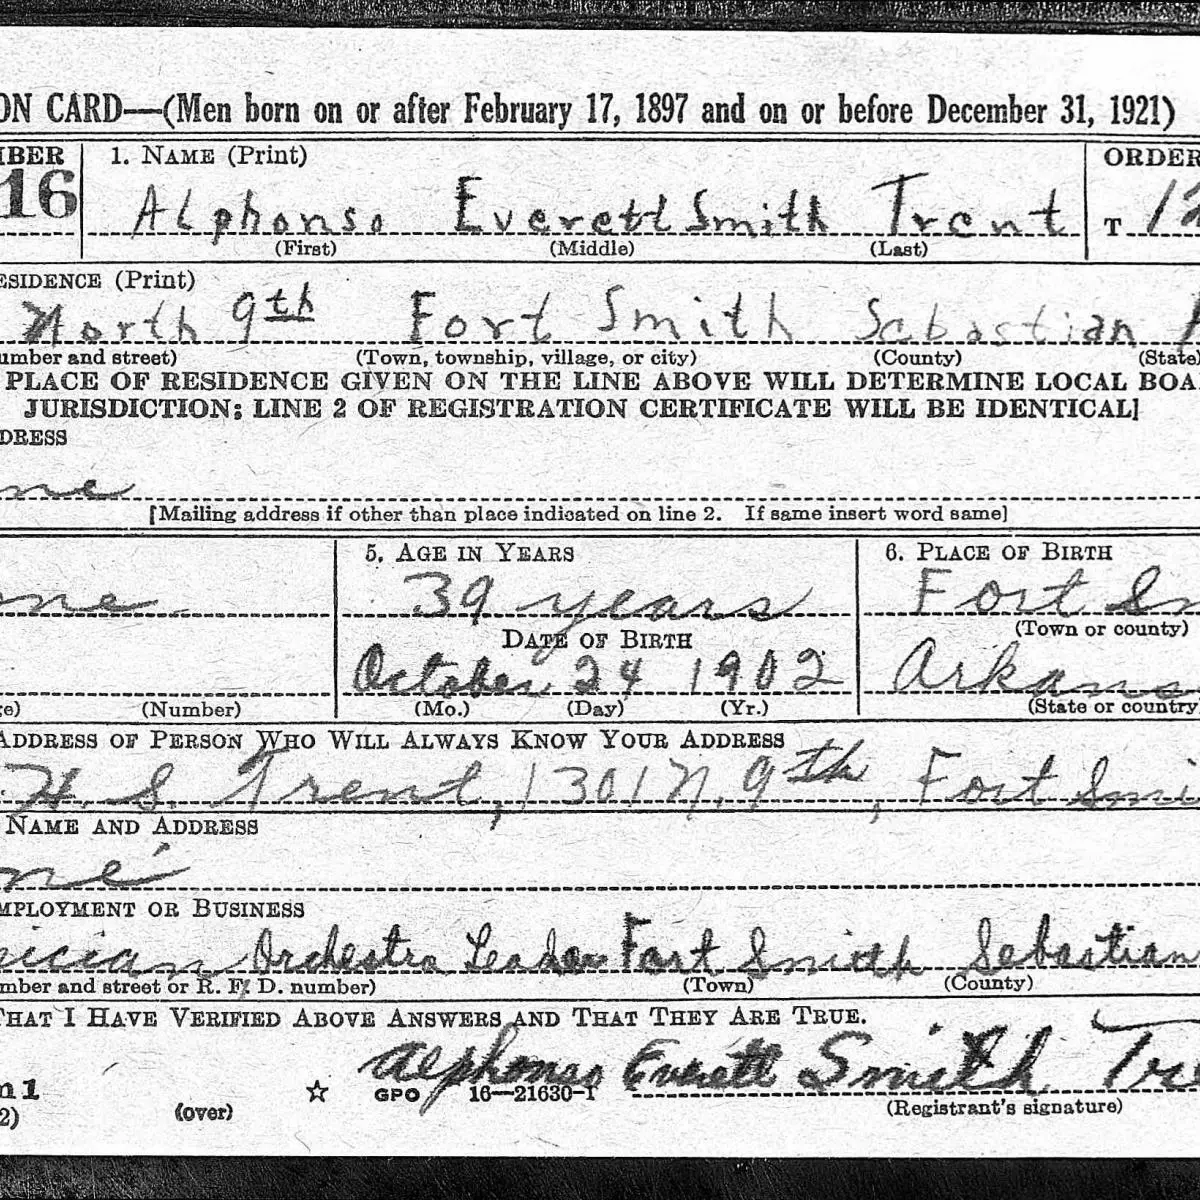 ON CARD—(Men born on or after February 17, 1897 and on or before December 31, 1921)
MBER 1. NAME (Print) ORDER
16 Alphonso Everett Smith Trent T 12
(First) (Middle) (Last)
ESIDENCE (Print)
North 9th Fort Smith Sebastian A
umber and street) (Town, township, village, or city) (County) (State)
PLACE OF RESIDENCE GIVEN ON THE LINE ABOVE WILL DETERMINE LOCAL BOA
JURISDICTION; LINE 2 OF REGISTRATION CERTIFICATE WILL BE IDENTICAL]
DRESS
me
[Mailing address if other than place indicated on line 2. If same insert word same]
5. AGE IN YEARS 6. PLACE OF BIRTH
one 39 years Fort Sm
DATE OF BIRTH (Town or county)
October 24 1902 Arkansa
e) (Number) (Mo.) (Day) (Yr.) (State or country)
ADDRESS OF PERSON WHO WILL ALWAYS KNOW YOUR ADDRESS
H. S. Trent, 1301 N. 9th, Fort Smi
NAME AND ADDRESS
ne
MPLOYMENT OR BUSINESS
sician Orchestra Leader Fort Smith Sebastian
mber and street or R. F. D. number) (Town) (County)
THAT I HAVE VERIFIED ABOVE ANSWERS AND THAT THEY ARE TRUE.
Alphonso Everett Smith Tre
m 1 ☆ GPO 16—21630-1
2) (over) (Registrant's signature)